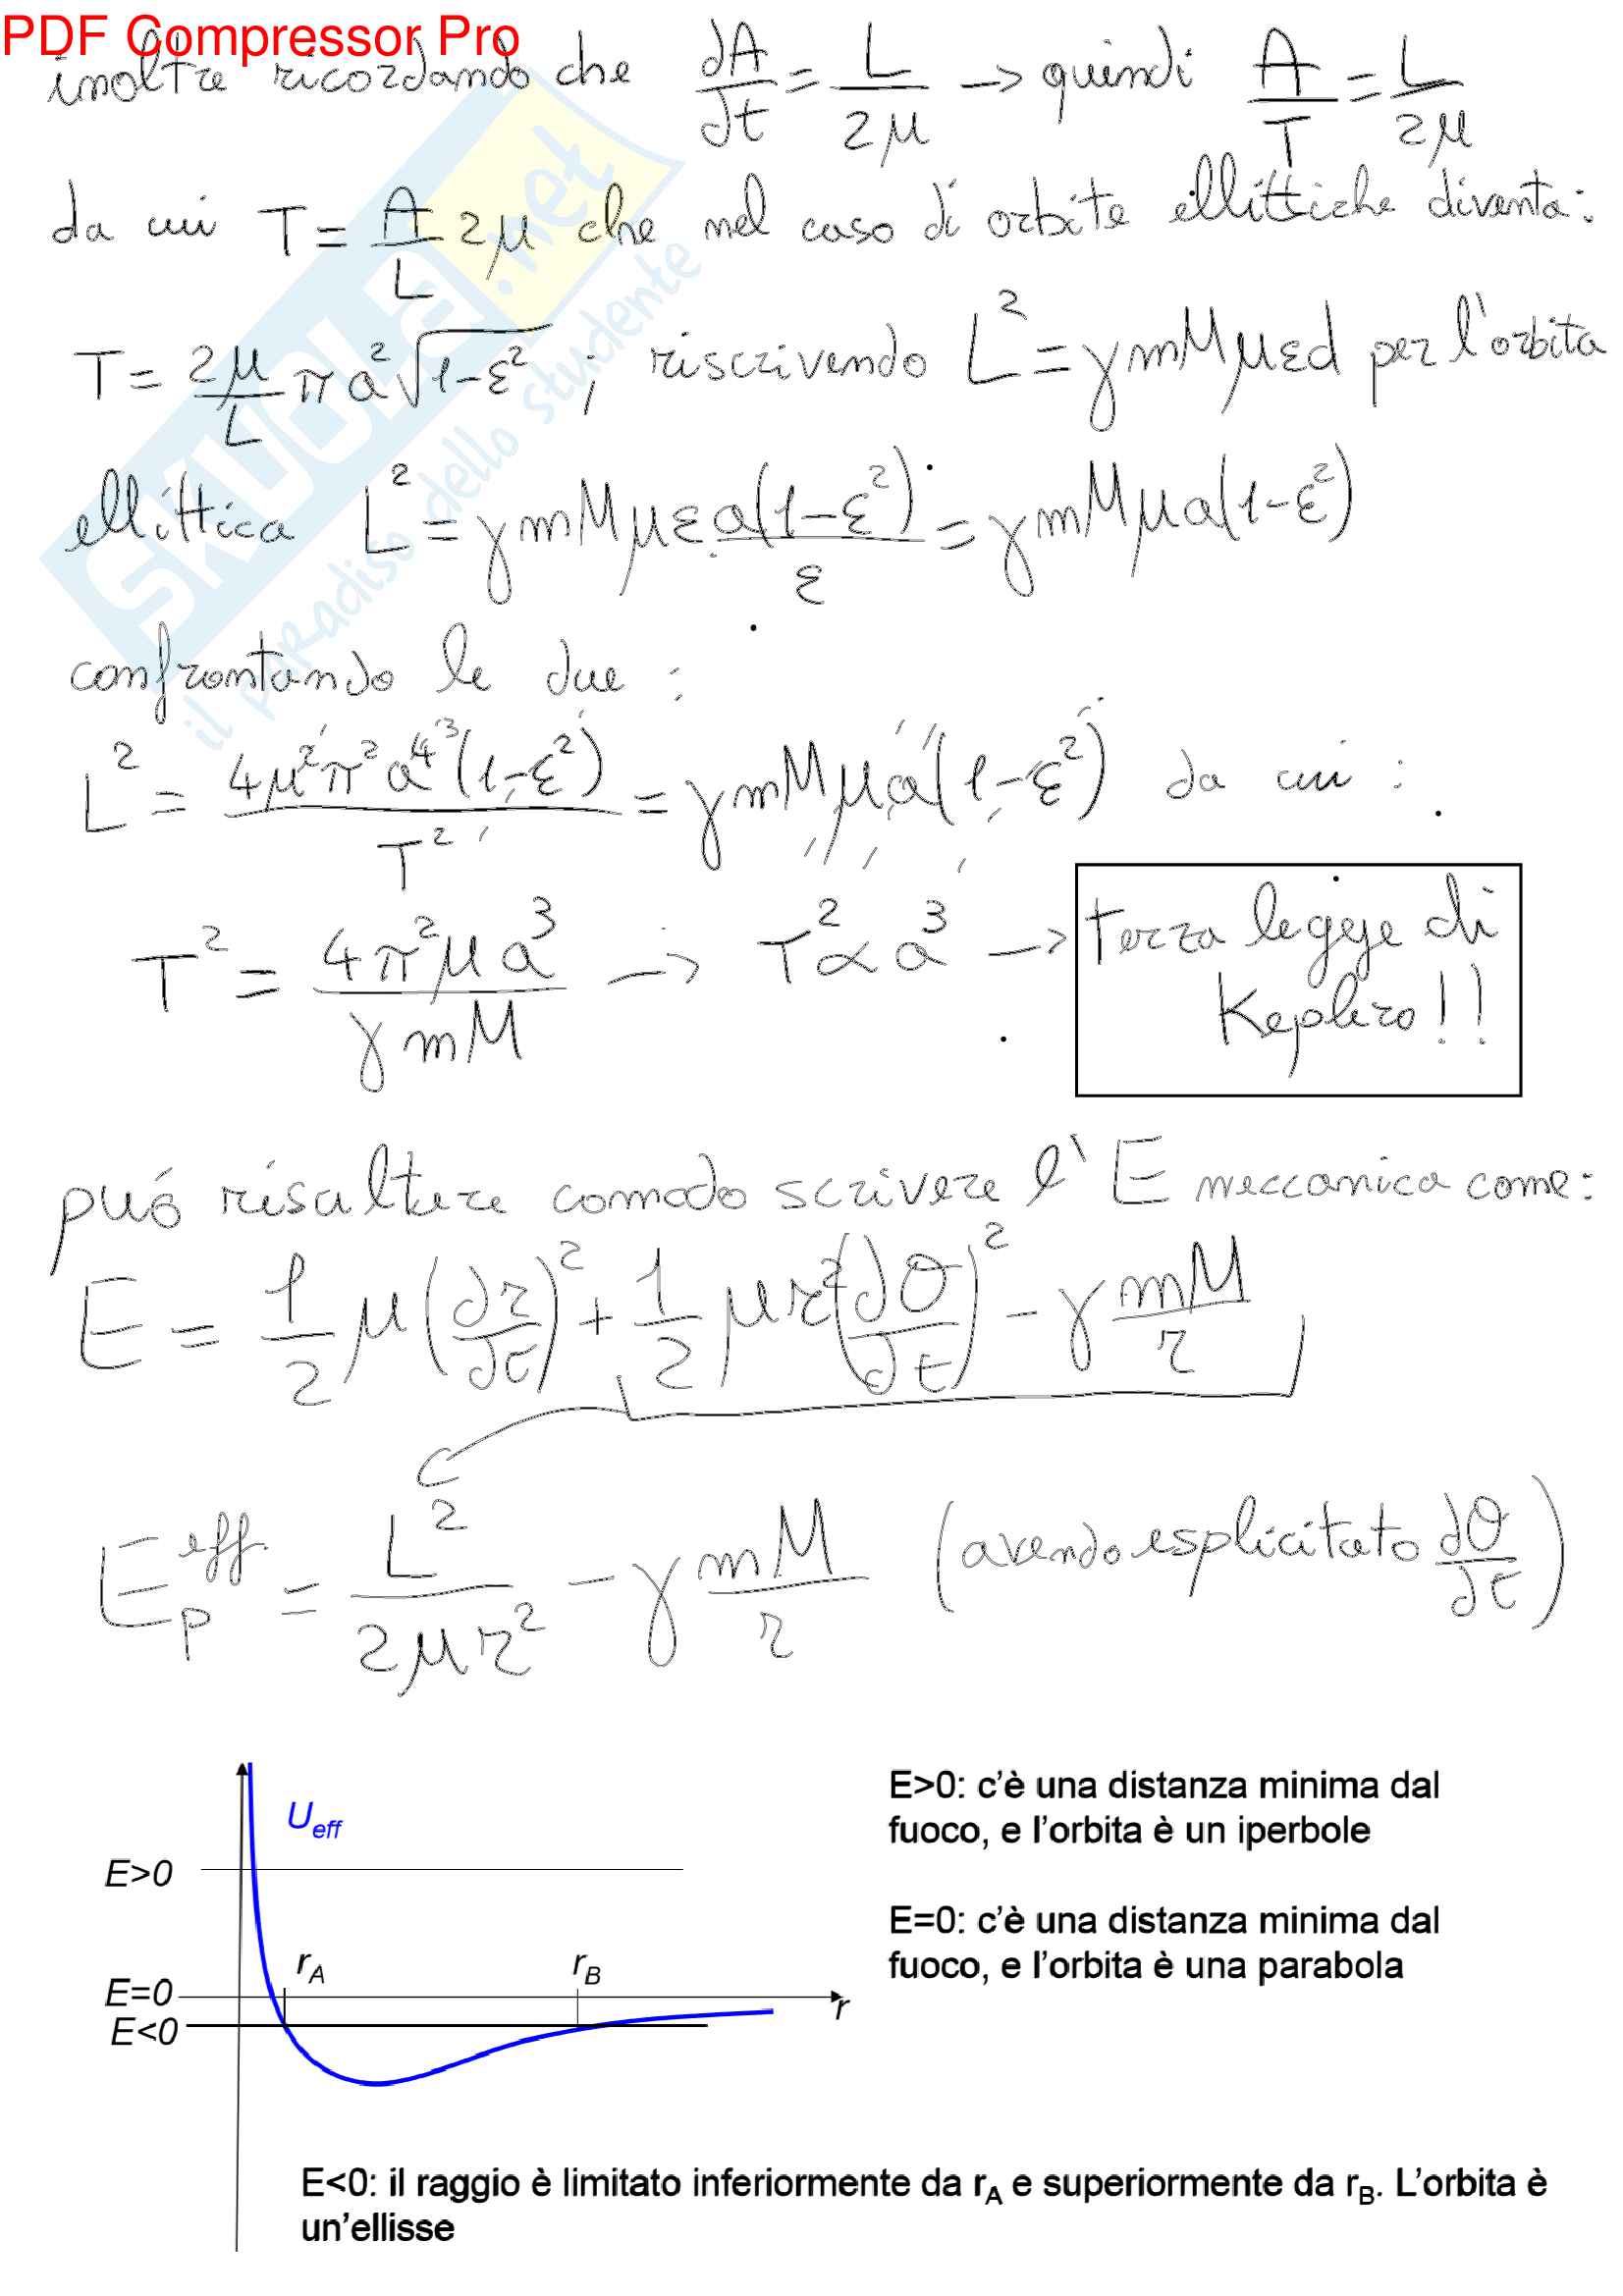 PDF Compressor Pro
inoltre ricordando che dA/dt = L/2μ → quindi A/T = L/2μ
da cui T = A/L 2μ che nel caso di orbite ellittiche diventa:
T = 2μ/L π a² √(1-ε²) ; riscrivendo L² = γ m M μ ε d per l'orbita
ellittica L² = γ m M μ ε a(1-ε²)/ε = γ m M μ a(1-ε²)
confrontando le due :
L² = 4μ²π²a⁴ ³(1-ε²)/T² = γ m M μ a(1-ε²) da cui :
T² = 4π²μa³/γmM → T² ∝ a³ → terza legge di
Keplero!!
può risultare comodo scrivere l'E meccanica come:
E = 1/2 μ (dr/dt)² + 1/2 μ r² (dθ/dt)² - γ mM/r
E_p^eff. = L²/2μr² - γ mM/r (avendo esplicitato dθ/dt)
U_eff
E>0
r_A r_B
E=0
r
E<0
E>0: c'è una distanza minima dal
fuoco, e l'orbita è un iperbole
E=0: c'è una distanza minima dal
fuoco, e l'orbita è una parabola
E<0: il raggio è limitato inferiormente da r_A e superiormente da r_B. L'orbita è
un'ellisse
SKUOLA.net
il paradiso dello studente